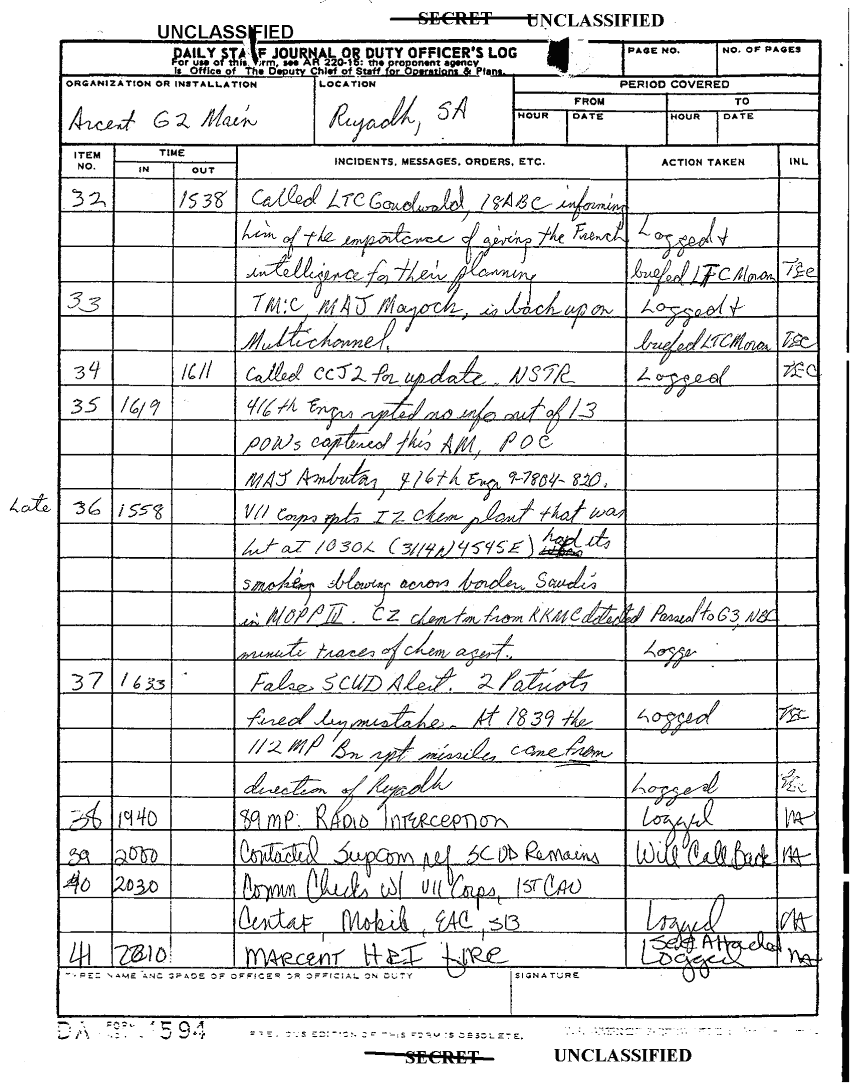 SECRET UNCLASSIFIED
UNCLASSIFIED
DAILY STAFF JOURNAL OR DUTY OFFICER'S LOG
For use of this form, see AR 220-15: the proponent agency
is Office of The Deputy Chief of Staff for Operations & Plans.
PAGE NO. NO. OF PAGES
ORGANIZATION OR INSTALLATION LOCATION PERIOD COVERED
FROM TO
Arcent G2 Main Riyadh, SA HOUR DATE HOUR DATE
ITEM NO. TIME INCIDENTS, MESSAGES, ORDERS, ETC. ACTION TAKEN INL
IN OUT
32 1538 Called LTC Goudwald, 18ABC informing
him of the importance of giving the French Logged +
intelligence for their planning briefed LTC Moran TEC
33 TMIC, MAJ Mayock, is back up on Logged +
Multichannel. briefed LTC Moran TEC
34 1611 Called CCJ2 for update. NSTR Logged TEC
35 1619 416th Engrs rpted no info out of 13
POWs captured this AM, POC
MAJ Ambutas, 416th Engr 9-7804-820.
Late 36 1558 VII Corps rpts IZ chem plant that was
hit at 1030L (3114N 4545E) had its
smoking blowing across border. Saudis
in MOPP III. CZ chem tm from KKMC detected Passed to G3, NBC
minute traces of chem agent. Logge
37 1633 False SCUD Alert. 2 Patriots
fired by mistake. At 1839 the Logged TEC
112 MP Bn rpt missiles came from
direction of Riyadh Logged TEC
38 1940 89 MP: RADIO INTERCEPTION Logged
39 2000 Contacted Supcom ref SCUD Remains Will Call Back
40 2030 Comm Checks w/ VII Corps, 1ST CAV
Centaf, Mobil, EAC, 513 Logged
41 2210 MARCENT H&I FIRE See Attached
Logged
TYPED NAME AND GRADE OF OFFICER OR OFFICIAL ON DUTY SIGNATURE
DA FORM 1594 PREVIOUS EDITION OF THIS FORM IS OBSOLETE.
SECRET UNCLASSIFIED